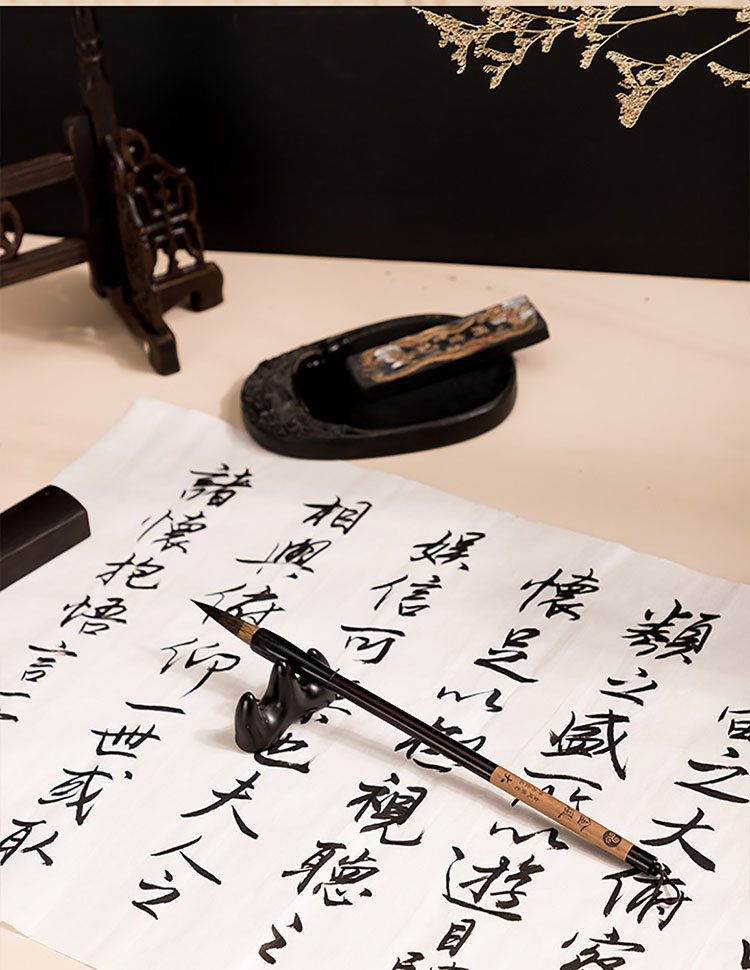 宙之大俯察
類之盛所以遊目
懷足以極視聽之
娛信可也夫人之
相與俯仰一世或取
諸懷抱悟言一